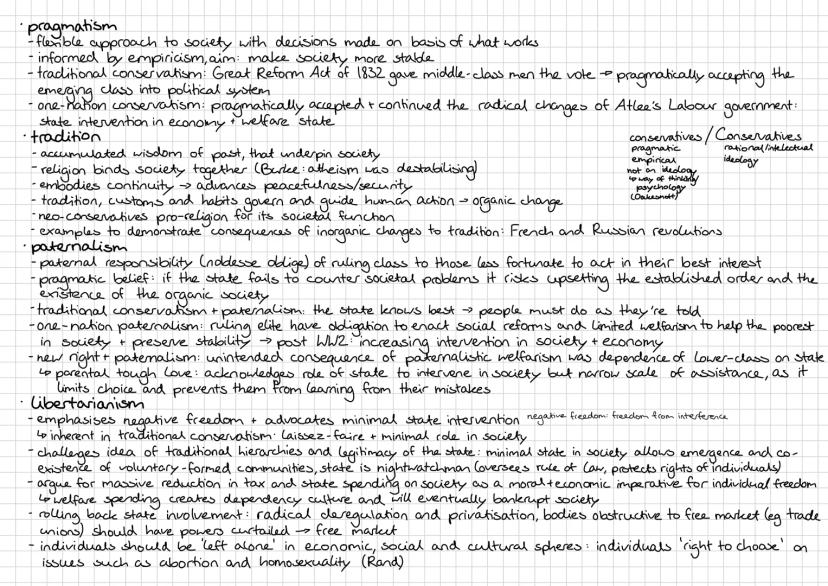 · pragmatism
- flexible approach to society with decisions made on basis of what works
- informed by empiricism, aim: make society more stable
- traditional conservatism: Great Reform Act of 1832 gave middle-class men the vote → pragmatically accepting the
emerging class into political system
- one-nation conservatism: pragmatically accepted + continued the radical changes of Atlee's Labour government:
state intervention in economy + welfare state
· tradition
- accumulated wisdom of past, that underpin society
- religion binds society together (Burke: atheism was destabilising)
- embodies continuity → advances peacefulness/security
- tradition, customs and habits govern and guide human action → organic change
- neo-conservatives pro-religion for its societal function
- examples to demonstrate consequences of inorganic changes to tradition: French and Russian revolutions
conservatives / Conservatives
pragmatic rational/intelectual
empirical ideology
not an ideology
↳ way of thinking/
psychology
(Oakeshott)
· paternalism
- paternal responsibility (noldesse oblige) of ruling class to those less fortunate to act in their best interest
- pragmatic belief: if the state fails to counter societal problems it risks upsetting the established order and the
existence of the organic society
- traditional conservatism + paternalism: the state knows best → people must do as they're told
- one-nation paternalism: ruling elite have obligation to enact social reforms and limited welfarism to help the poorest
in society + preserve stability → post WW2: increasing intervention in society + economy
- new right + paternalism: unintended consequence of paternalistic welfarism was dependence of lower-class on state
↳ parental tough love: acknowledges role of state to intervene in society but narrow scale of assistance, as it
limits choice and prevents them from learning from their mistakes
· libertarianism
- emphasises negative freedom + advocates minimal state intervention negative freedom: freedom from interference
↳ inherent in traditional conservatism: laissez-faire + minimal role in society
- challenges idea of traditional hierarchies and legitimacy of the state: minimal state in society allows emergence and co-
existence of voluntary-formed communities, state is nightwatchman (oversees rule of law, protects rights of individuals)
- argue for massive reduction in tax and state spending on society as a moral + economic imperative for individual freedom
↳ welfare spending creates dependency culture and will eventually bankrupt society
- rolling back state involvement: radical deregulation and privatisation, bodies obstructive to free market (eg trade
unions) should have powers curtailed → free market
- individuals should be 'left alone' in economic, social and cultural spheres: individuals 'right to choose' on
issues such as abortion and homosexuality (Rand)